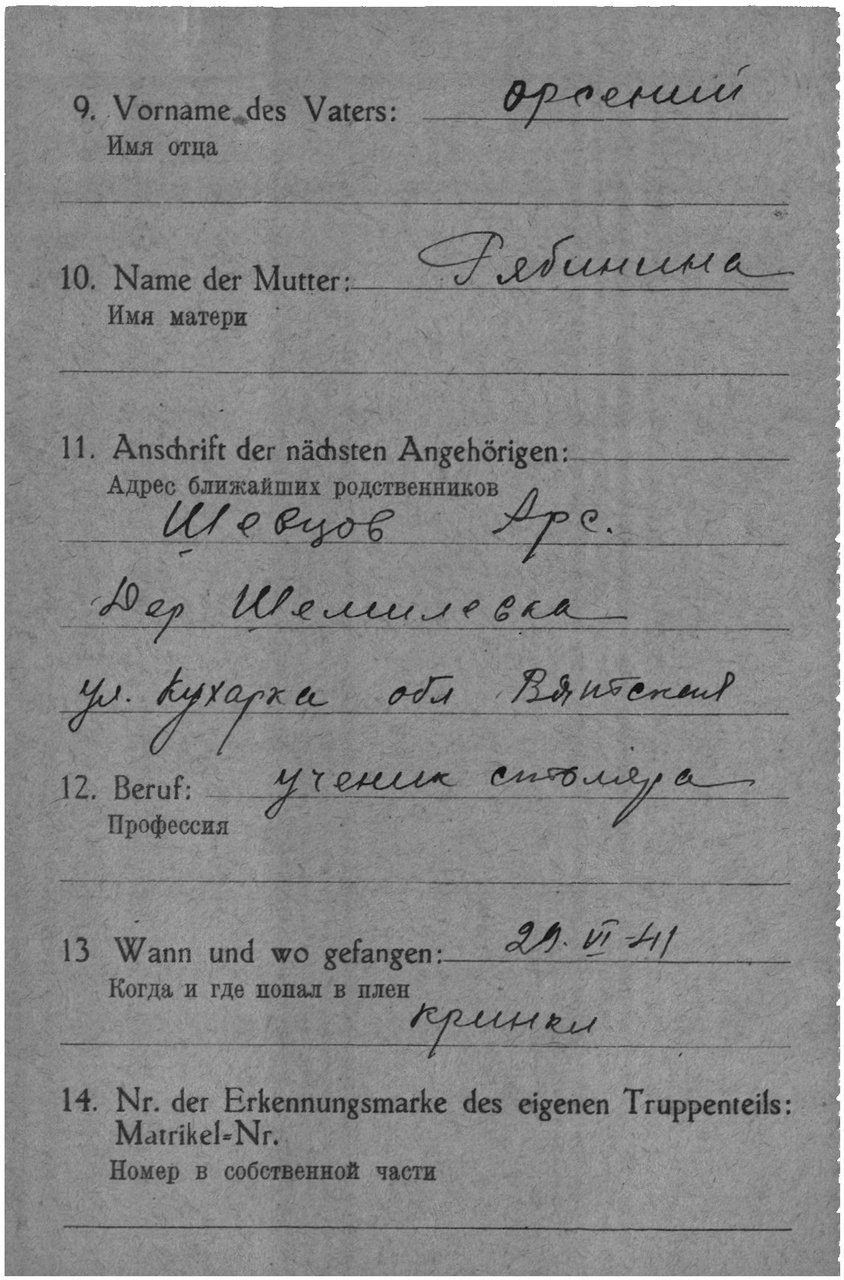 9. Vorname des Vaters: орсений
Имя отца
10. Name der Mutter: Рябинина
Имя матери
11. Anschrift der nächsten Angehörigen:
Адрес ближайших родственников
Шевцов Арс.
Дер Шемилевка
ул. Кухарка обл Вятская
12. Beruf: ученик столяра
Профессия
13 Wann und wo gefangen: 29. VI-41
Когда и где попал в плен
кринки
14. Nr. der Erkennungsmarke des eigenen Truppenteils:
Matrikel=Nr.
Номер в собственной части